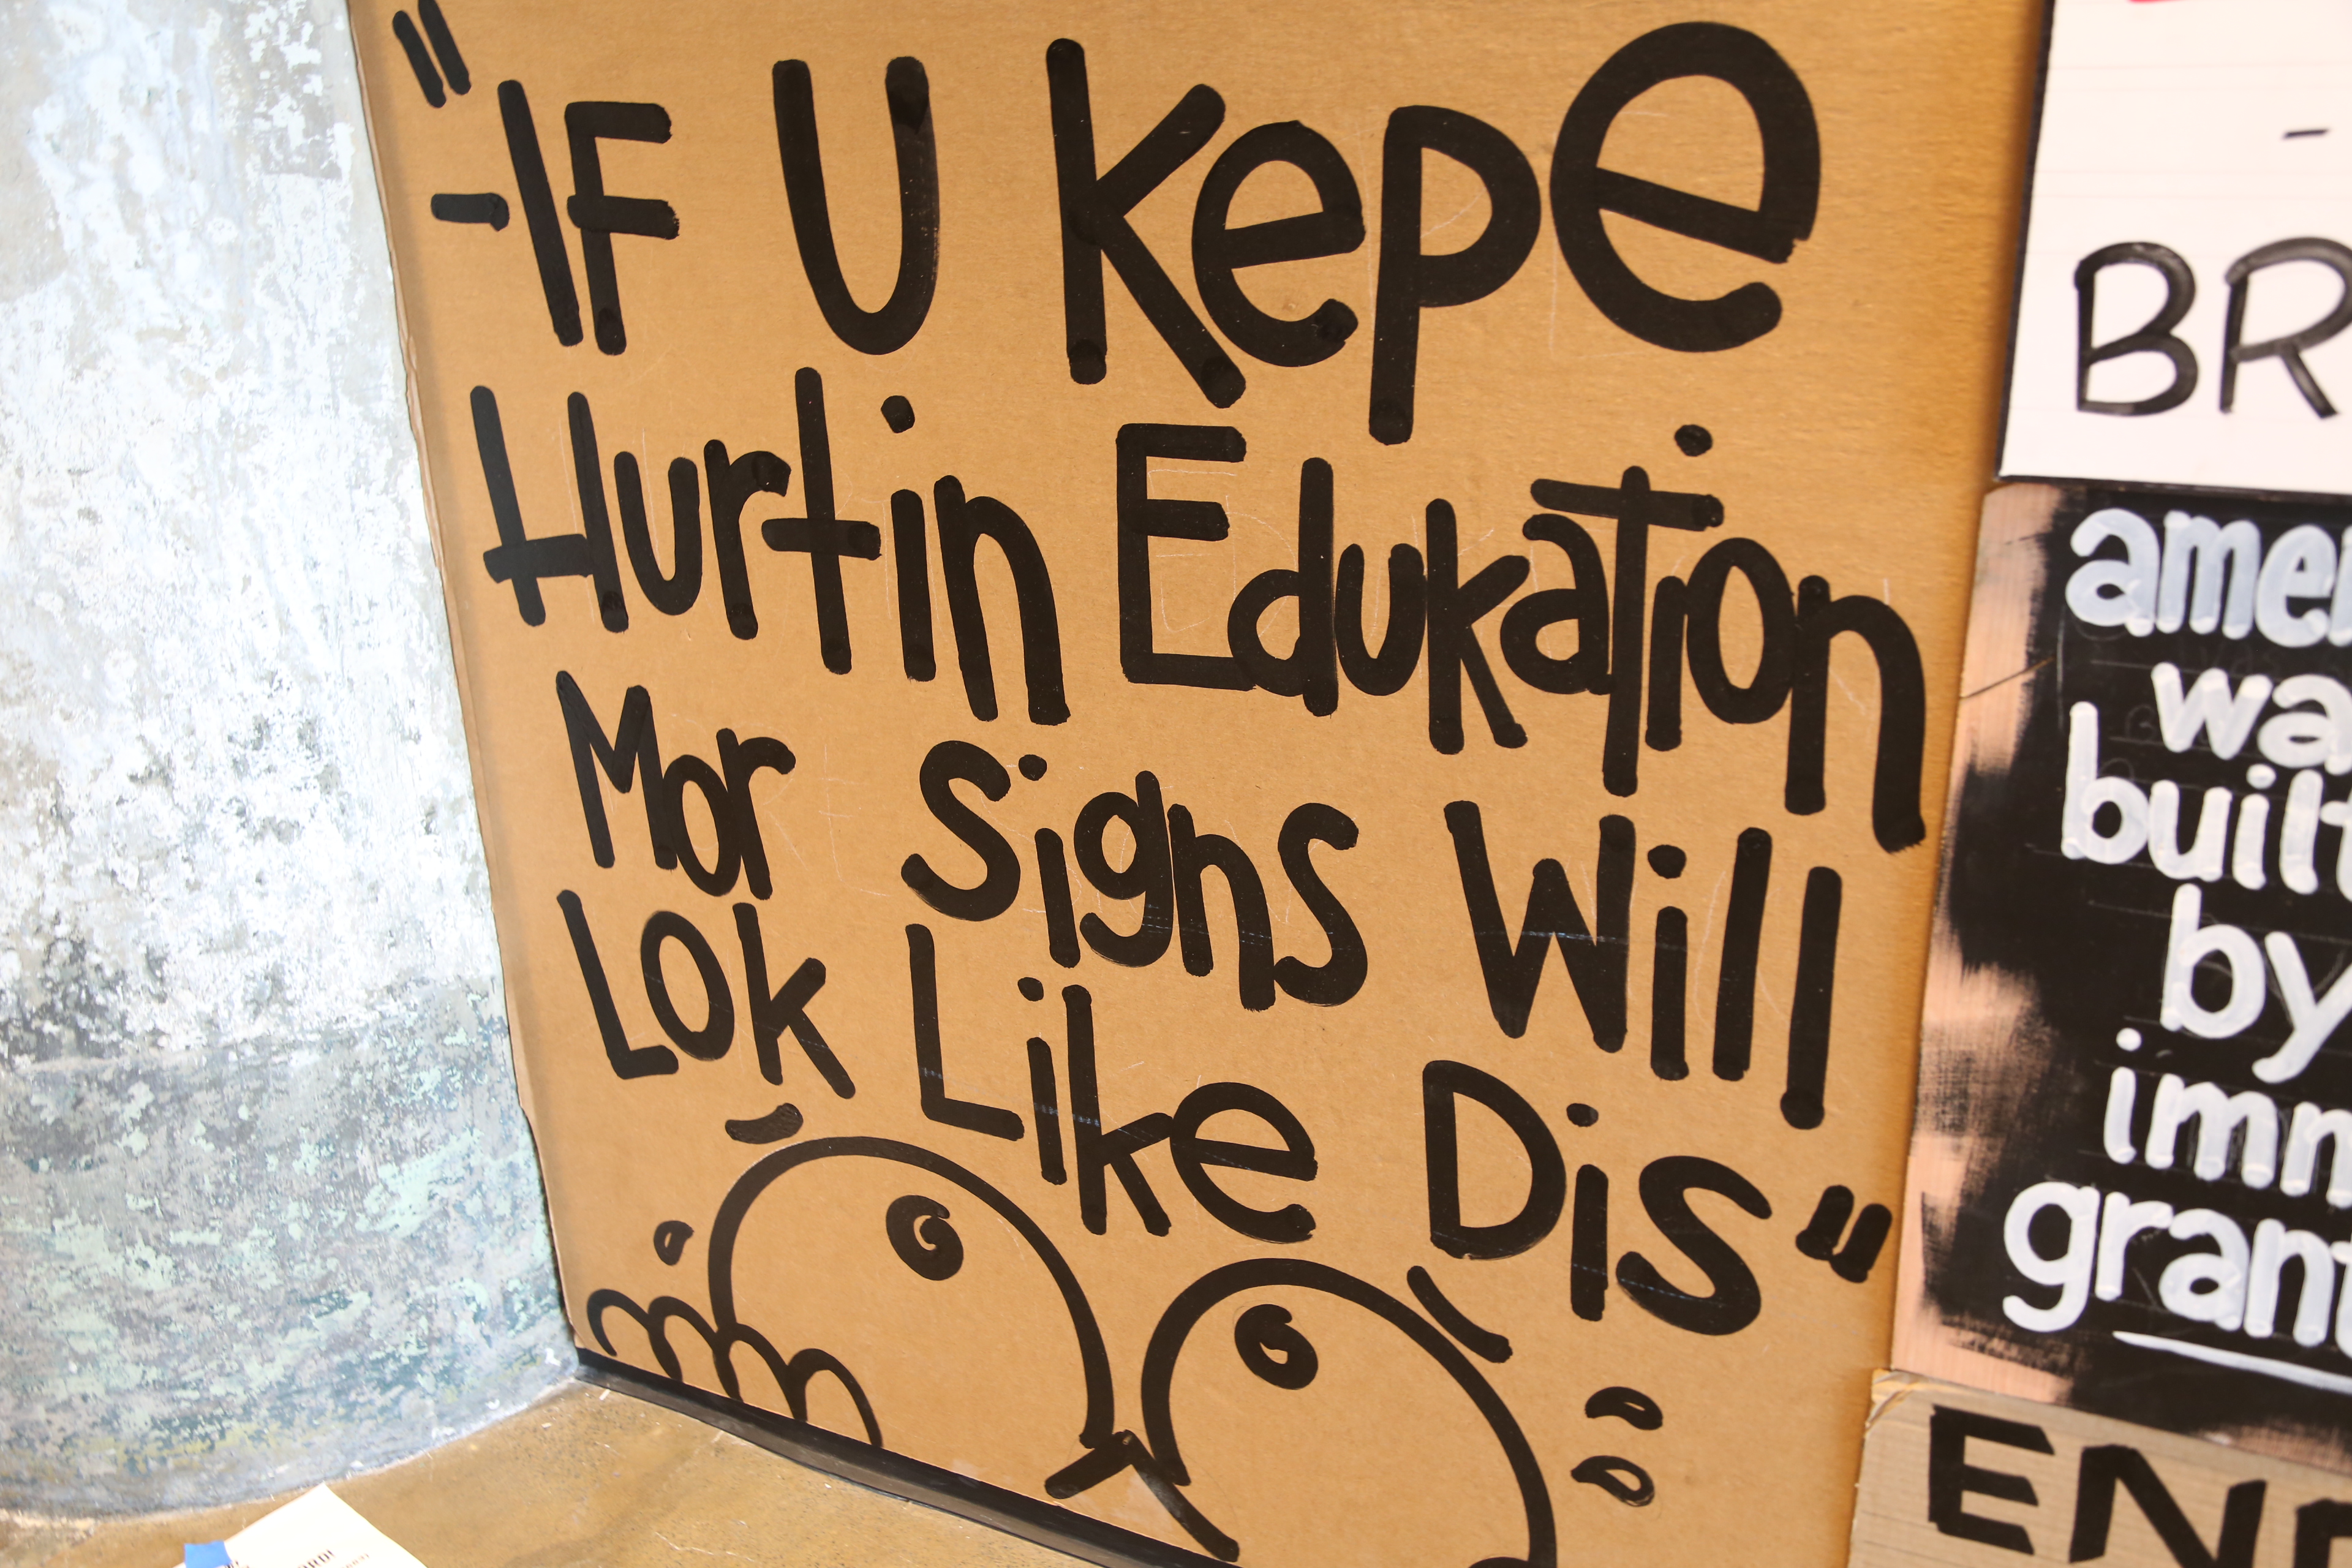 "IF U Kepe
Hurtin Edukation
Mor Signs Will
Lok Like Dis"
BR
amer
wa
built
by
imm
grant
END